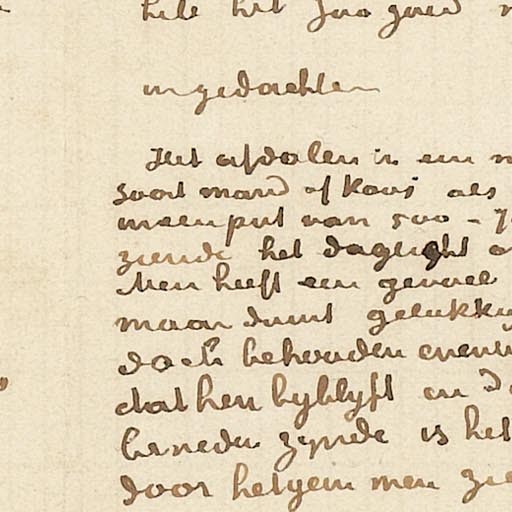 hele het zoo goed
in gedachten
Het afdalen in een
soort mand of kooi als
meenput van 500 - 7
ziende het daglicht
Men heeft een gevoel
maar duurt gelukkig
doch behouden
dat hen byblyft en
beneden zynde is het
door hetgeen men zie